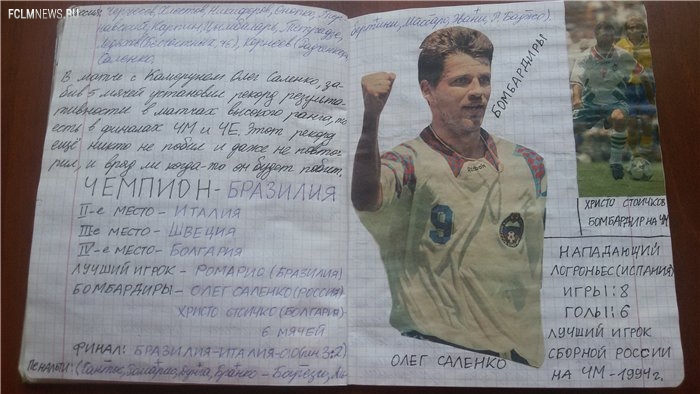 FCLMNEWS.RU
Россия: Черчесов, Хлестов, Никифоров, Онопко, Тер
навский, Карпин, Цымбаларь,
Корнеев
Саленко.
В матче с Камеруном Олег Саленко, за-
бив 5 мячей установил рекорд результа-
тивности в матчах высокого ранга, то
есть в финалах ЧМ и ЧЕ. Этот рекорд
ещё никто не побил и даже не повто-
рил, и вряд ли когда-то он будет побит.
ЧЕМПИОН - БРАЗИЛИЯ
II-е МЕСТО - ИТАЛИЯ
III-е МЕСТО - ШВЕЦИЯ
IV-е МЕСТО - БОЛГАРИЯ
ЛУЧШИЙ ИГРОК - РОМАРИО (БРАЗИЛИЯ)
БОМБАРДИРЫ - ОЛЕГ САЛЕНКО (РОССИЯ)
ХРИСТО СТОИЧКО (БОЛГАРИЯ)
6 МЯЧЕЙ
ФИНАЛ: БРАЗИЛИЯ-ИТАЛИЯ-0:0 (пен. 3:2)
ПЕНАЛЬТИ:
Массаро, Эвани, Р. Баджо).
БОМБАРДИРЫ
9
ОЛЕГ САЛЕНКО
ХРИСТО СТОИЧКОВ
БОМБАРДИР НА ЧМ
НАПАДАЮЩИЙ
ЛОГРОНЬЕС (ИСПАНИЯ)
ИГРЫ: 8
ГОЛЫ: 6
ЛУЧШИЙ ИГРОК
СБОРНОЙ РОССИИ
НА ЧМ-1994г.